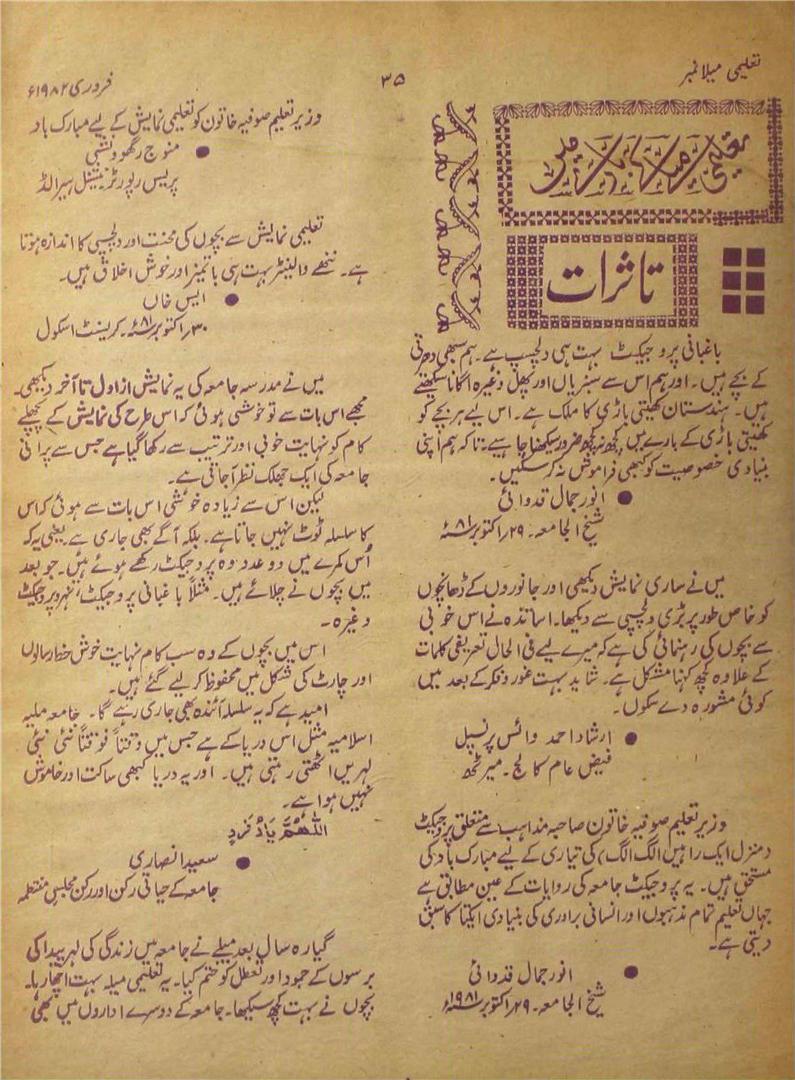 تعلیمی میلا نمبر
۳۵
فروری ۱۹۸۲ء
تعلیمی میلا
تاثرات
باغبانی پروجیکٹ بہت ہی دلچسپ ہے۔ ہم سبھی دھرتی
کے بچے ہیں۔ اور ہم اس سے سبزیاں اور پھل وغیرہ اگانا سیکھتے
ہیں۔ ہندستان کھیتی باڑی کا ملک ہے۔ اس لیے ہر بچے کو
کھیتی باڑی کے بارے میں کچھ نہ کچھ ضرور سیکھنا چاہیے۔ تاکہ ہم اپنی
بنیادی خصوصیت کو کبھی فراموش نہ کر سکیں۔
● انور جمال قدوائی
شیخ الجامعہ۔ ۲۹ اکتوبر ۸۱ء
میں نے ساری نمایش دیکھی اور جانوروں کے ڈھانچوں
کو خاص طور پر بڑی دلچسپی سے دیکھا۔ اساتذہ نے اس خوبی
سے بچوں کی رہنمائی کی ہے کہ میرے لیے فی الحال تعریفی کلمات
کے علاوہ کچھ کہنا مشکل ہے۔ شاید بہت غور و فکر کے بعد میں
کوئی مشورہ دے سکوں۔
● ارشاد احمد وائس پرنسپل
فیض عام کالج۔ میرٹھ
وزیر تعلیم صوفیہ خاتون صاحبہ مذاہب سے متعلق پروجیکٹ
(منزل ایک راہیں الگ الگ) کی تیاری کے لیے مبارک باد کی
مستحق ہیں۔ یہ پروجیکٹ جامعہ کی روایات کے عین مطابق ہے
جہاں تعلیم تمام مذہبوں اور انسانی برادری کی بنیادی ایکتا کا سبق
دیتی ہے۔
● انور جمال قدوائی
شیخ الجامعہ۔ ۲۹ اکتوبر ۱۹۸۱ء
وزیر تعلیم صوفیہ خاتون کو تعلیمی نمایش کے لیے مبارک باد
● منوج رگھوونشی
پریس رپورٹر نیشنل ہیرالڈ
تعلیمی نمایش سے بچوں کی محنت اور دلچسپی کا اندازہ ہوتا
ہے۔ ننھے والینٹر بہت ہی باتمیز اور خوش اخلاق ہیں۔
● ایس خاں
۳۰ اکتوبر ۸۱ء۔ کریسنٹ اسکول
میں نے مدرسہ جامعہ کی یہ نمایش از اول تا آخر دیکھی۔
مجھے اس بات سے تو خوشی ہوئی کہ اس طرح کی نمایش کے پچھلے
کام کو نہایت خوبی اور ترتیب سے رکھا گیا ہے جس سے پرانی
جامعہ کی ایک جھلک نظر آجاتی ہے۔
لیکن اس سے زیادہ خوشی اس بات سے ہوئی کہ اس
کا سلسلہ ٹوٹ نہیں جاتا ہے۔ بلکہ آگے بھی جاری ہے یعنی یہ کہ
اُس کمرے میں دو عدد وہ پروجیکٹ رکھے ہوئے ہیں۔ جو بعد
میں بچوں نے چلائے ہیں۔ مثلاً باغبانی پروجیکٹ، نہرو پروجیکٹ
وغیرہ۔
اس میں بچوں کے وہ سب کام نہایت خوش خط رسالوں
اور چارٹ کی شکل میں محفوظ کر لیے گئے ہیں۔
امید ہے کہ یہ سلسلہ آئندہ بھی جاری رہے گا۔ جامعہ ملیہ
اسلامیہ مثل اس دریا کے ہے جس میں وقتاً فوقتاً نئی نئی
لہریں اٹھتی رہتی ہیں۔ اور یہ دریا کبھی ساکت اور خاموش
نہیں ہوا ہے۔
اللّٰھُمَّ زِدْ فَزِدْ
● سعید انصاری
جامعہ کے حیاتی رکن اور رکن مجلس منتظمہ
گیارہ سال بعد میلے نے جامعہ میں زندگی کی لہر پیدا کی
برسوں کے جمود اور تعطل کو ختم کیا۔ یہ تعلیمی میلہ بہت اچھا رہا۔
بچوں نے بہت کچھ سیکھا۔ جامعہ کے دوسرے اداروں میں بھی